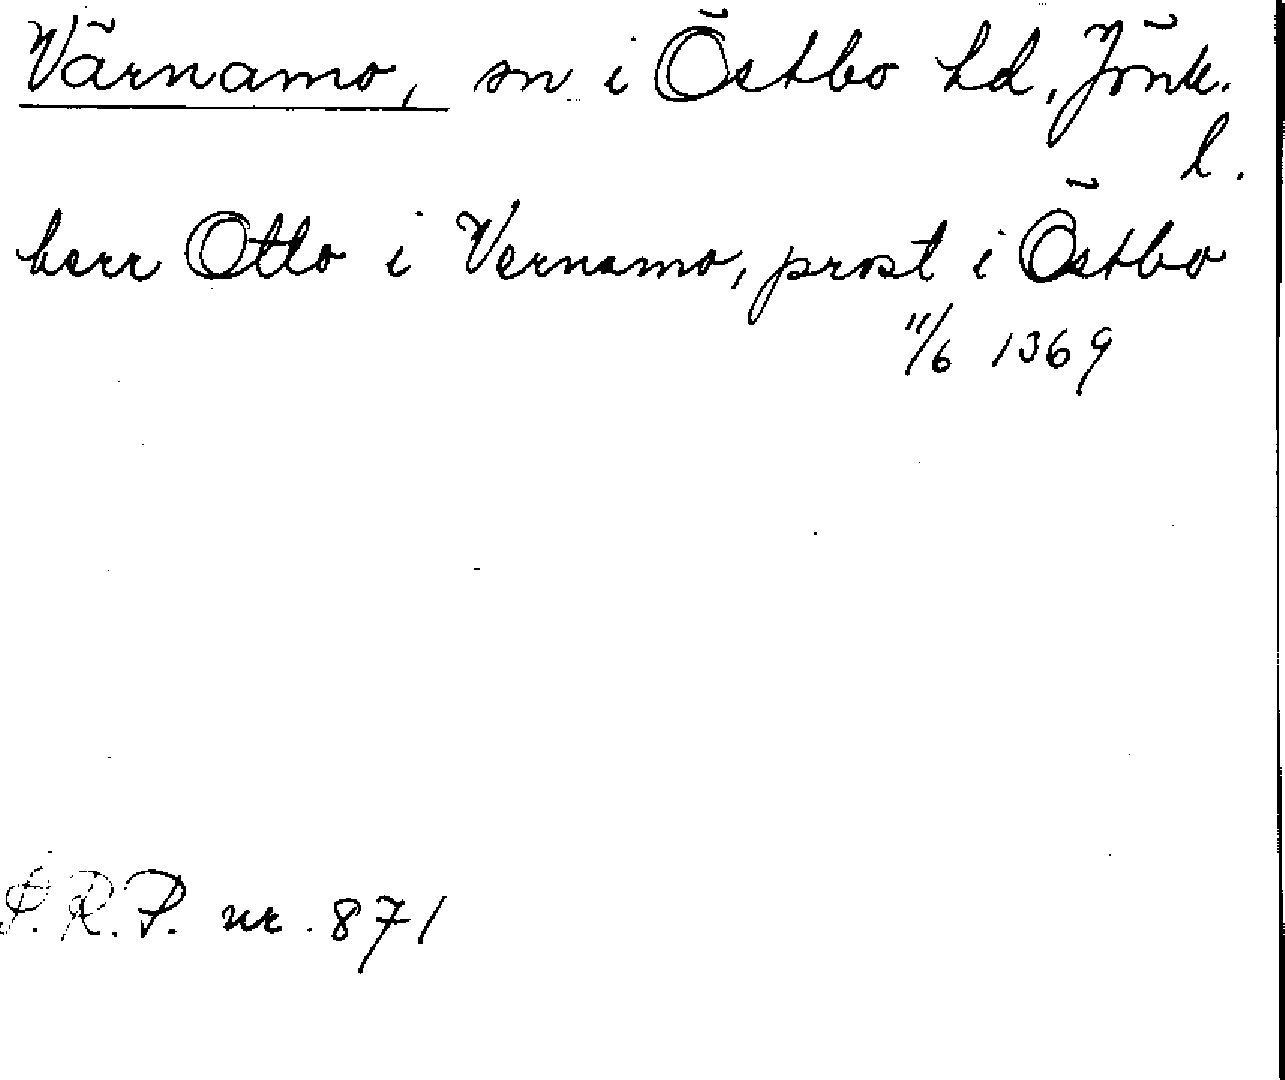 Värnamo, sn i Östbo hd, Jönk.
l.
herr Otto i Vernamo, prost i Östbo
11/6 1369
S.R.P. nr. 871